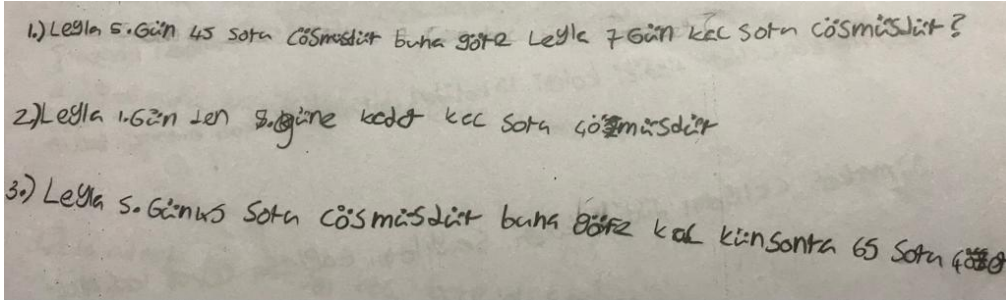 1.) Leyla 5.Gün 45 soru cösmüsdür buna göre Leyla 7 Gün kac soru cösmüsdür?
2) Leyla 1.Gün den 8.güne kadar kac soru çözmüsdür
3.) Leyla 5.Gün 45 soru cösmüsdür buna göre kac kün sonra 65 soru